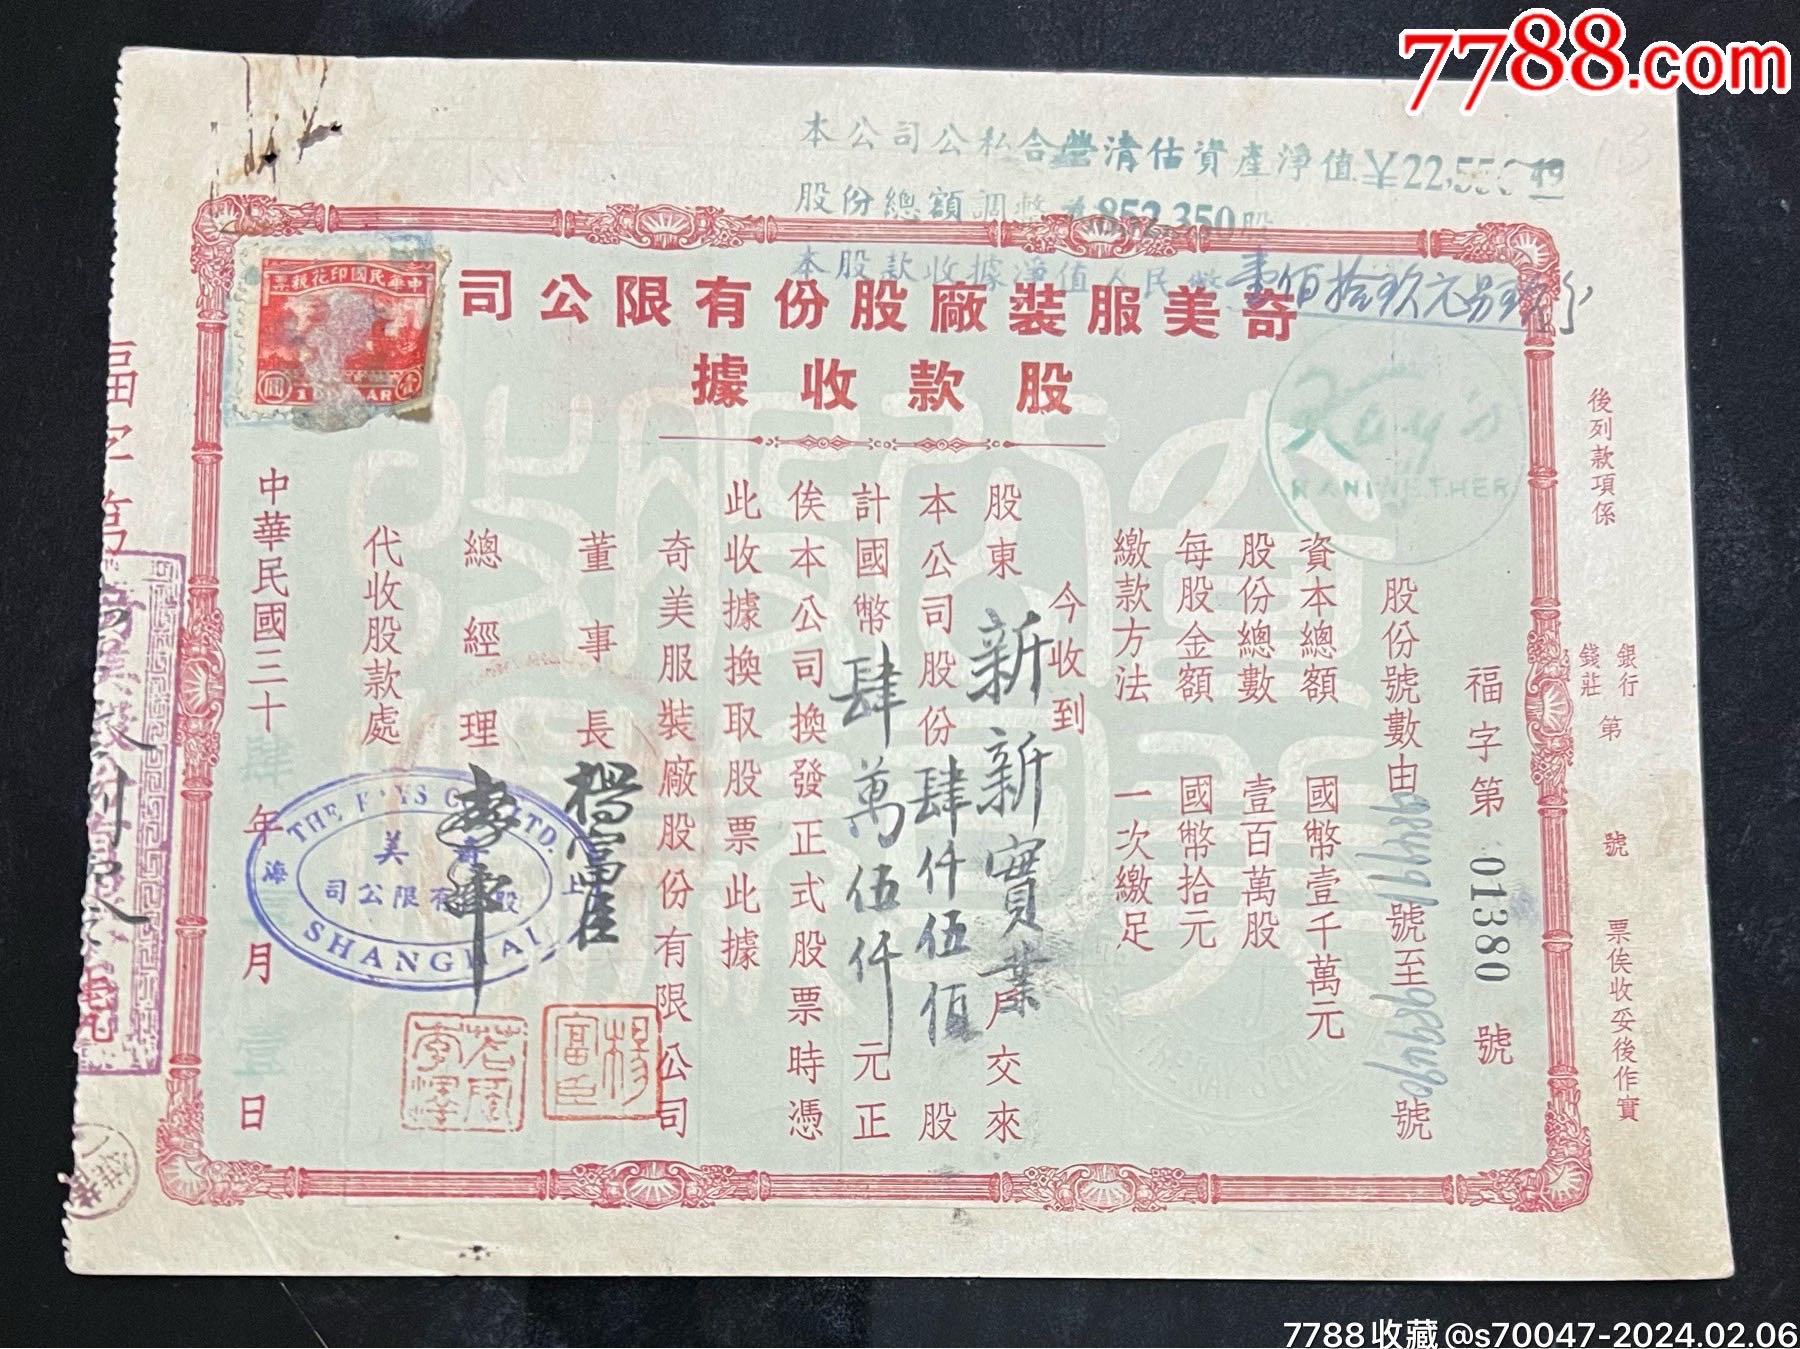 7788.com
本公司公私合營清估資產淨值¥22,55
股份總額調整為852,350股
本股款收據淨值人民幣壹佰拾玖元
奇美服裝廠股份有限公司
股款收據
中華民國印花稅票
壹圓
Kay's
RANIWETHER
後列款項係
銀行
錢莊
第
號
票俟收妥後作實
福字第01380號
股份號數由984991號至989490號
資本總額 國幣壹千萬元
股份總數 壹百萬股
每股金額 國幣拾元
繳款方法 一次繳足
今收到
股東新新實業戶交來
本公司股份肆仟伍佰股
計國幣肆萬伍仟元正
俟本公司換發正式股票時憑
此收據換取股票此據
奇美服裝廠股份有限公司
董事長 楊富臣
總經理
代收股款處
中華民國三十肆年壹月壹日
THE KAYS CO. LTD.
上海
奇美
股份有限公司
SHANGHAI
楊富臣
福字第
7788收藏@s70047-2024.02.06